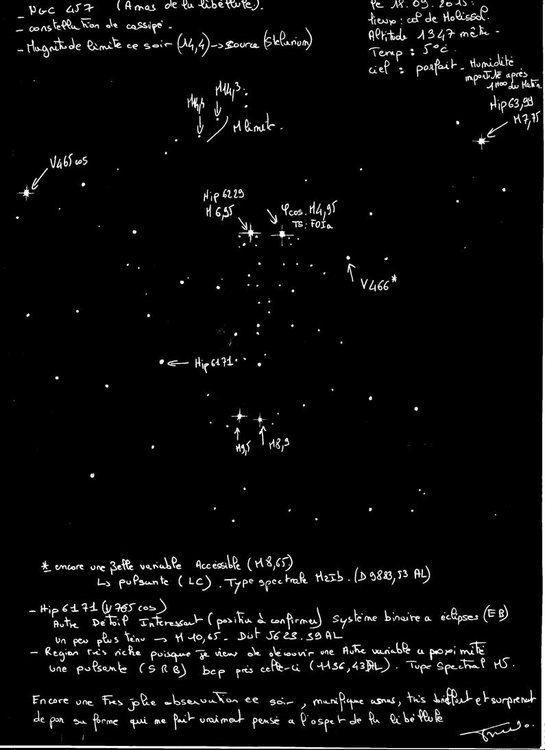 - NGC 457 (Amas de la libéllule).
- constellation de cassipé.
- Magnitude limite ce soir (14,4) → source (Stelarium)
Le 18.09.2015.
Lieu: col de Molissol.
Altitude 1347 mètr.
Temp : 5°c.
ciel : parfait - Humidité
importante après
1H00 du Matin
M14,3
M limit.
Hip 63,99
M 7,75
V465 cas
Hip 6229
M 6,95
φ cas. M4,95
TS: F0Ia
V466*
Hip 6171
M9,5
M8,9
* encore une Belle variable Accessible (M 8,65)
↳ pulsante (LC). Type spectrale M2Ib. (D 9883,53 AL)
- Hip 6171 (V765 cas)
Autre Detail Interessant (position à confirmer) système binaire a éclipses (EB)
un peu plus tenu → M 10,65 - Dist 5623.39 AL
- Region très riche puisque je viens de decouvrir une Autre variable a proximité
une pulsante (SRB) bcp près celle-ci (1136,43 AL). Type Spectral M5.
Encore une Tres jolie observation ce soir, manifique amas, très et surprenant
de par sa forme qui me fait vraiment pensé a l'aspet de la libéllule